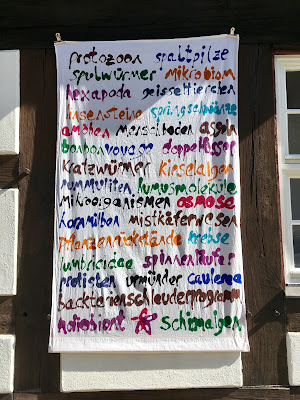 protozoon spaltpilze
spulwürmer mikrobiom
hexapoda geisseltierchen
linsensteine springschwänze
amöben menschoden asseln
bonbonvoyage doppelfüsser
kratzwürmer kieselalgen
nummuliten humusmoleküle
mikroorganismen osmose
hornmilben mistkäferwesen
pflanzenrückstände krebse
lumbricidae spinnenläufer
protisten urmünder caulerpa
backterienschleuderprogramm
holobiont schirmalgen